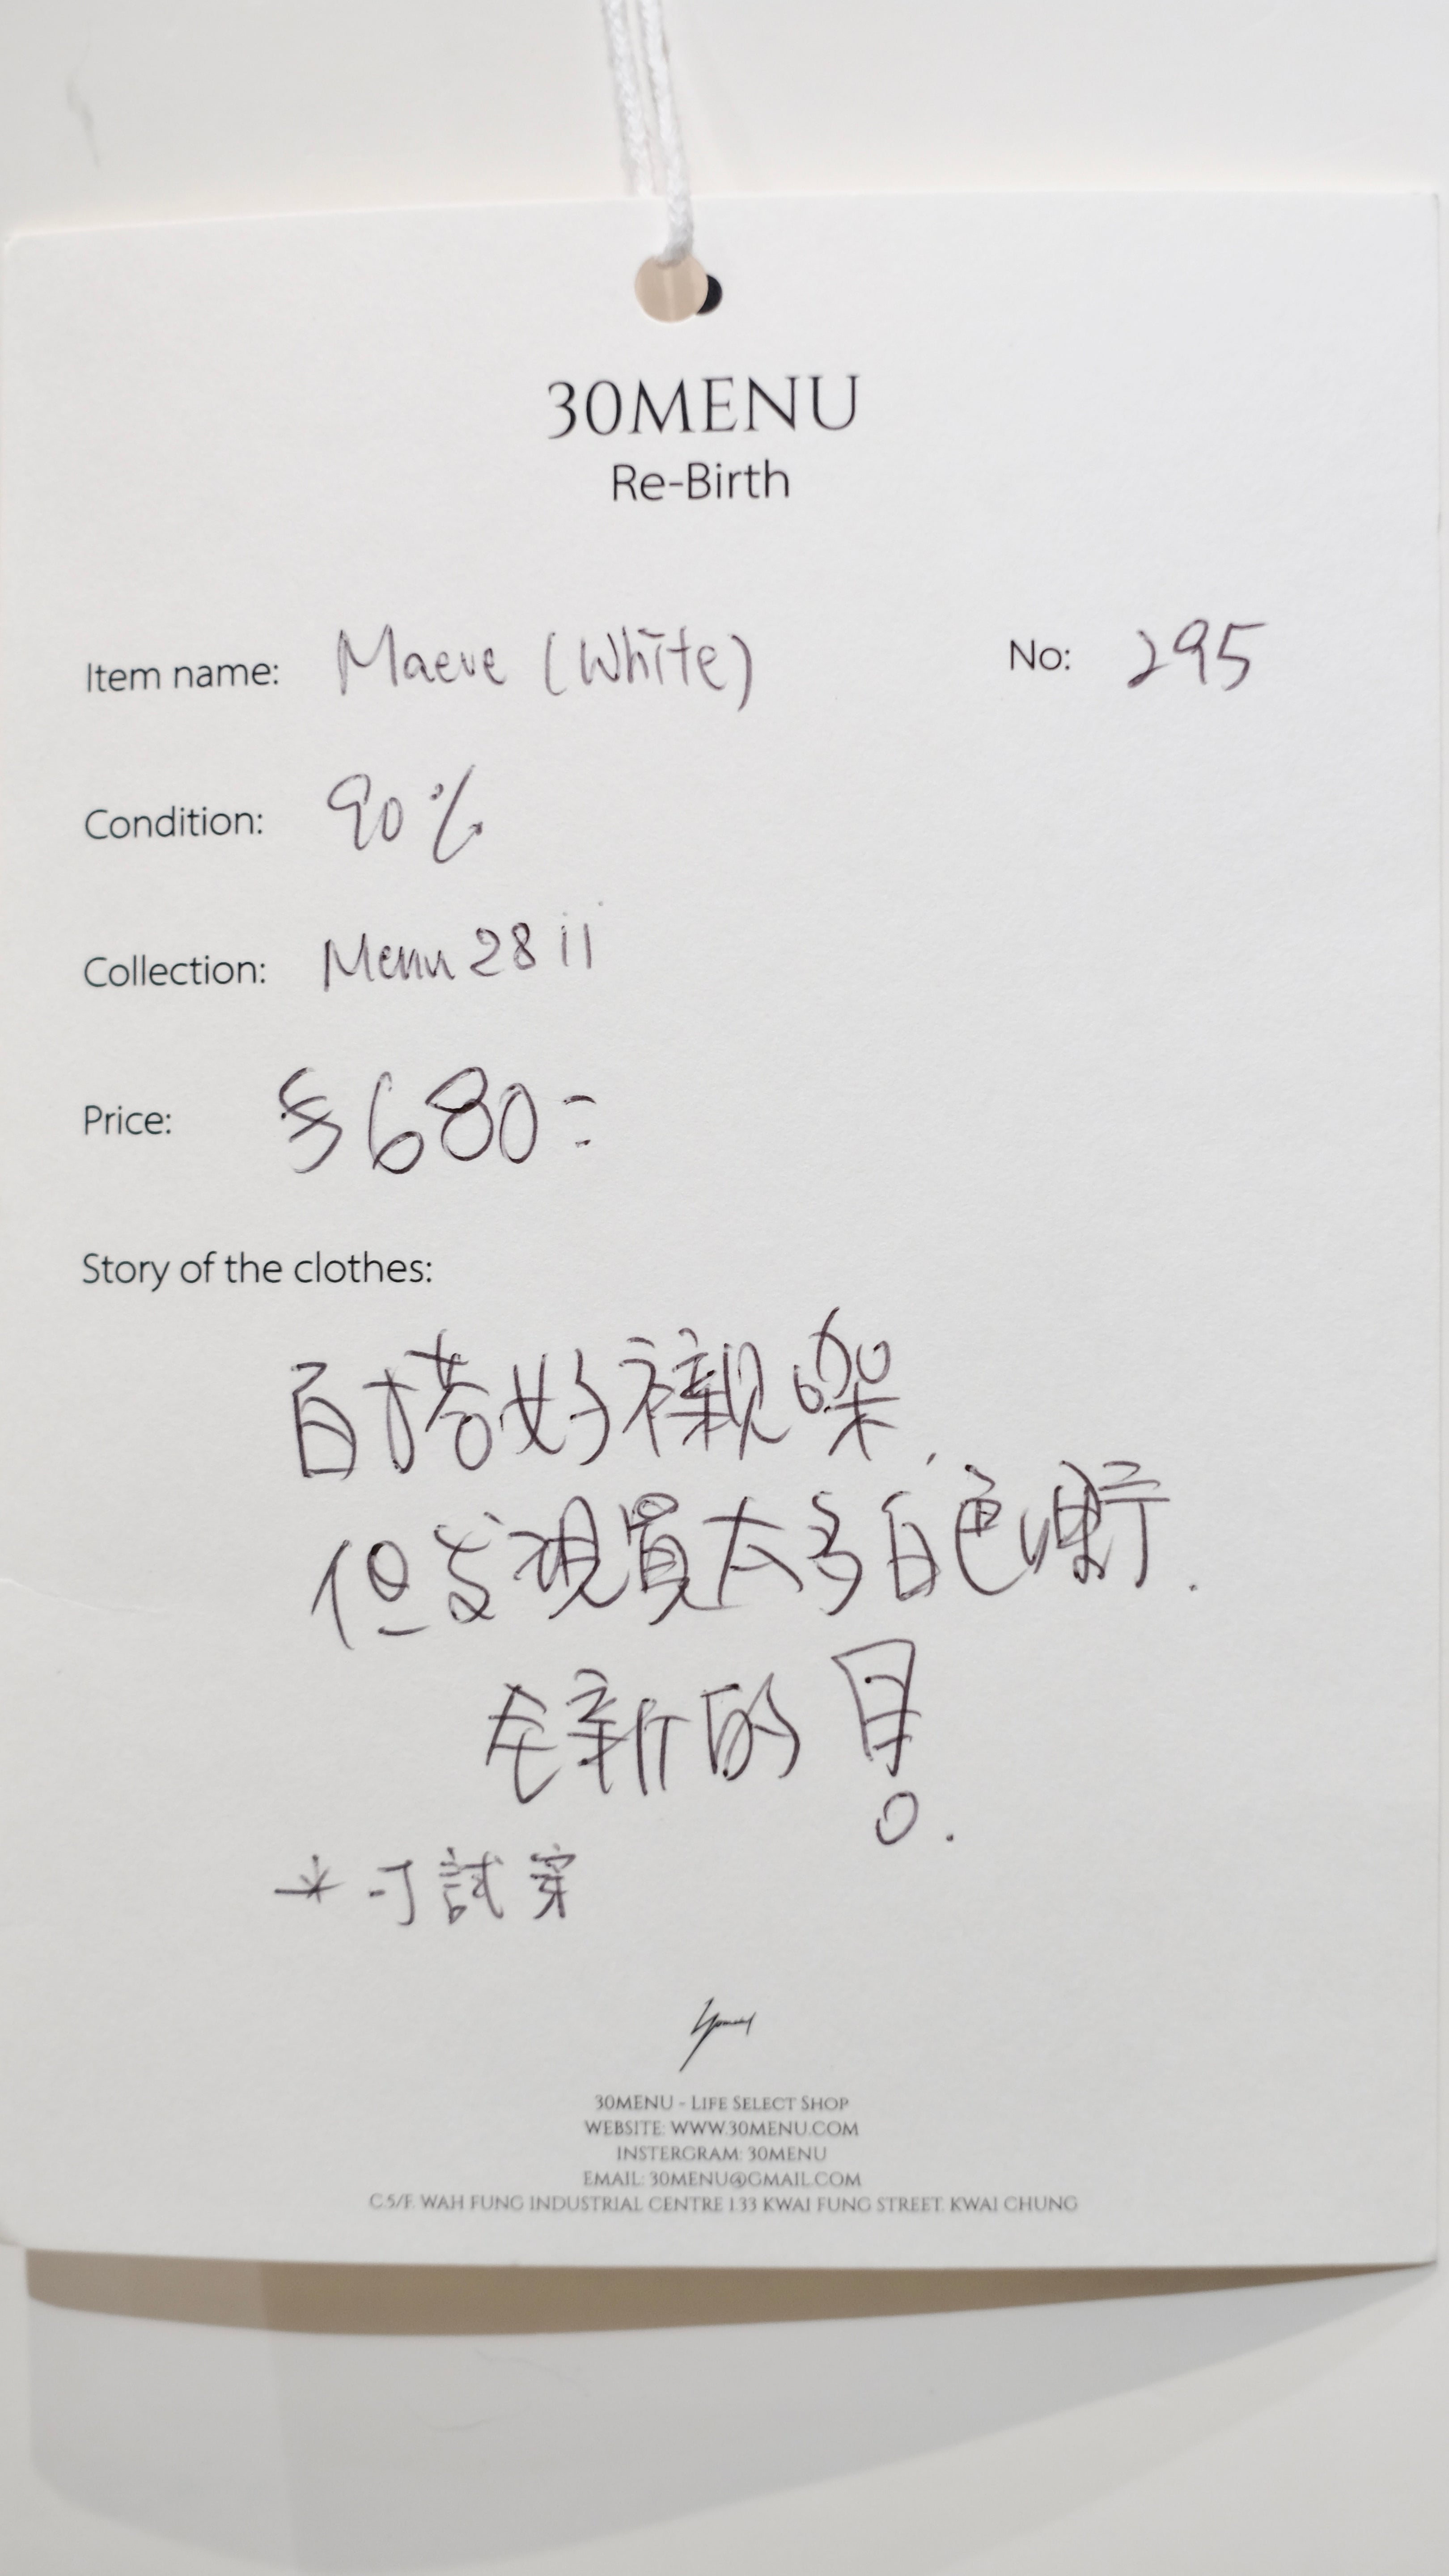 30MENU
Re-Birth
Item name: Maeve (White) No: 295
Condition: 90%
Collection: Menu 28 ii
Price: $680=
Story of the clothes:
百搭好襯㗎,
但发現買太多白色嘢.
全新的!
*可試穿
30MENU - LIFE SELECT SHOP
WEBSITE: WWW.30MENU.COM
INSTERGRAM: 30MENU
EMAIL: 30MENU@GMAIL.COM
C.5/F. WAH FUNG INDUSTRIAL CENTRE 1.33 KWAI FUNG STREET. KWAI CHUNG